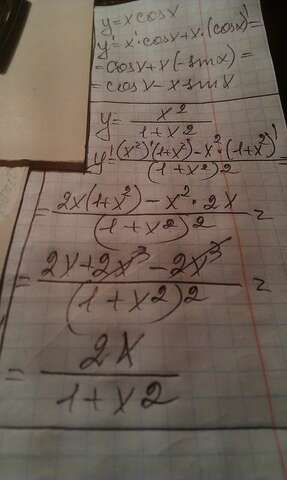 y=xcosx
y'=x'·cosx+x·(cosx)'=
=cosx+x(-sinx)=
=cosx-x·sinx
y=x²/(1+x²)
y'=((x²)'(1+x²)-x²·(1+x²)')/(1+x²)²
=(2x(1+x²)-x²·2x)/(1+x²)²=
=(2x+2x³-2x³)/(1+x²)²=
=2x/(1+x2)